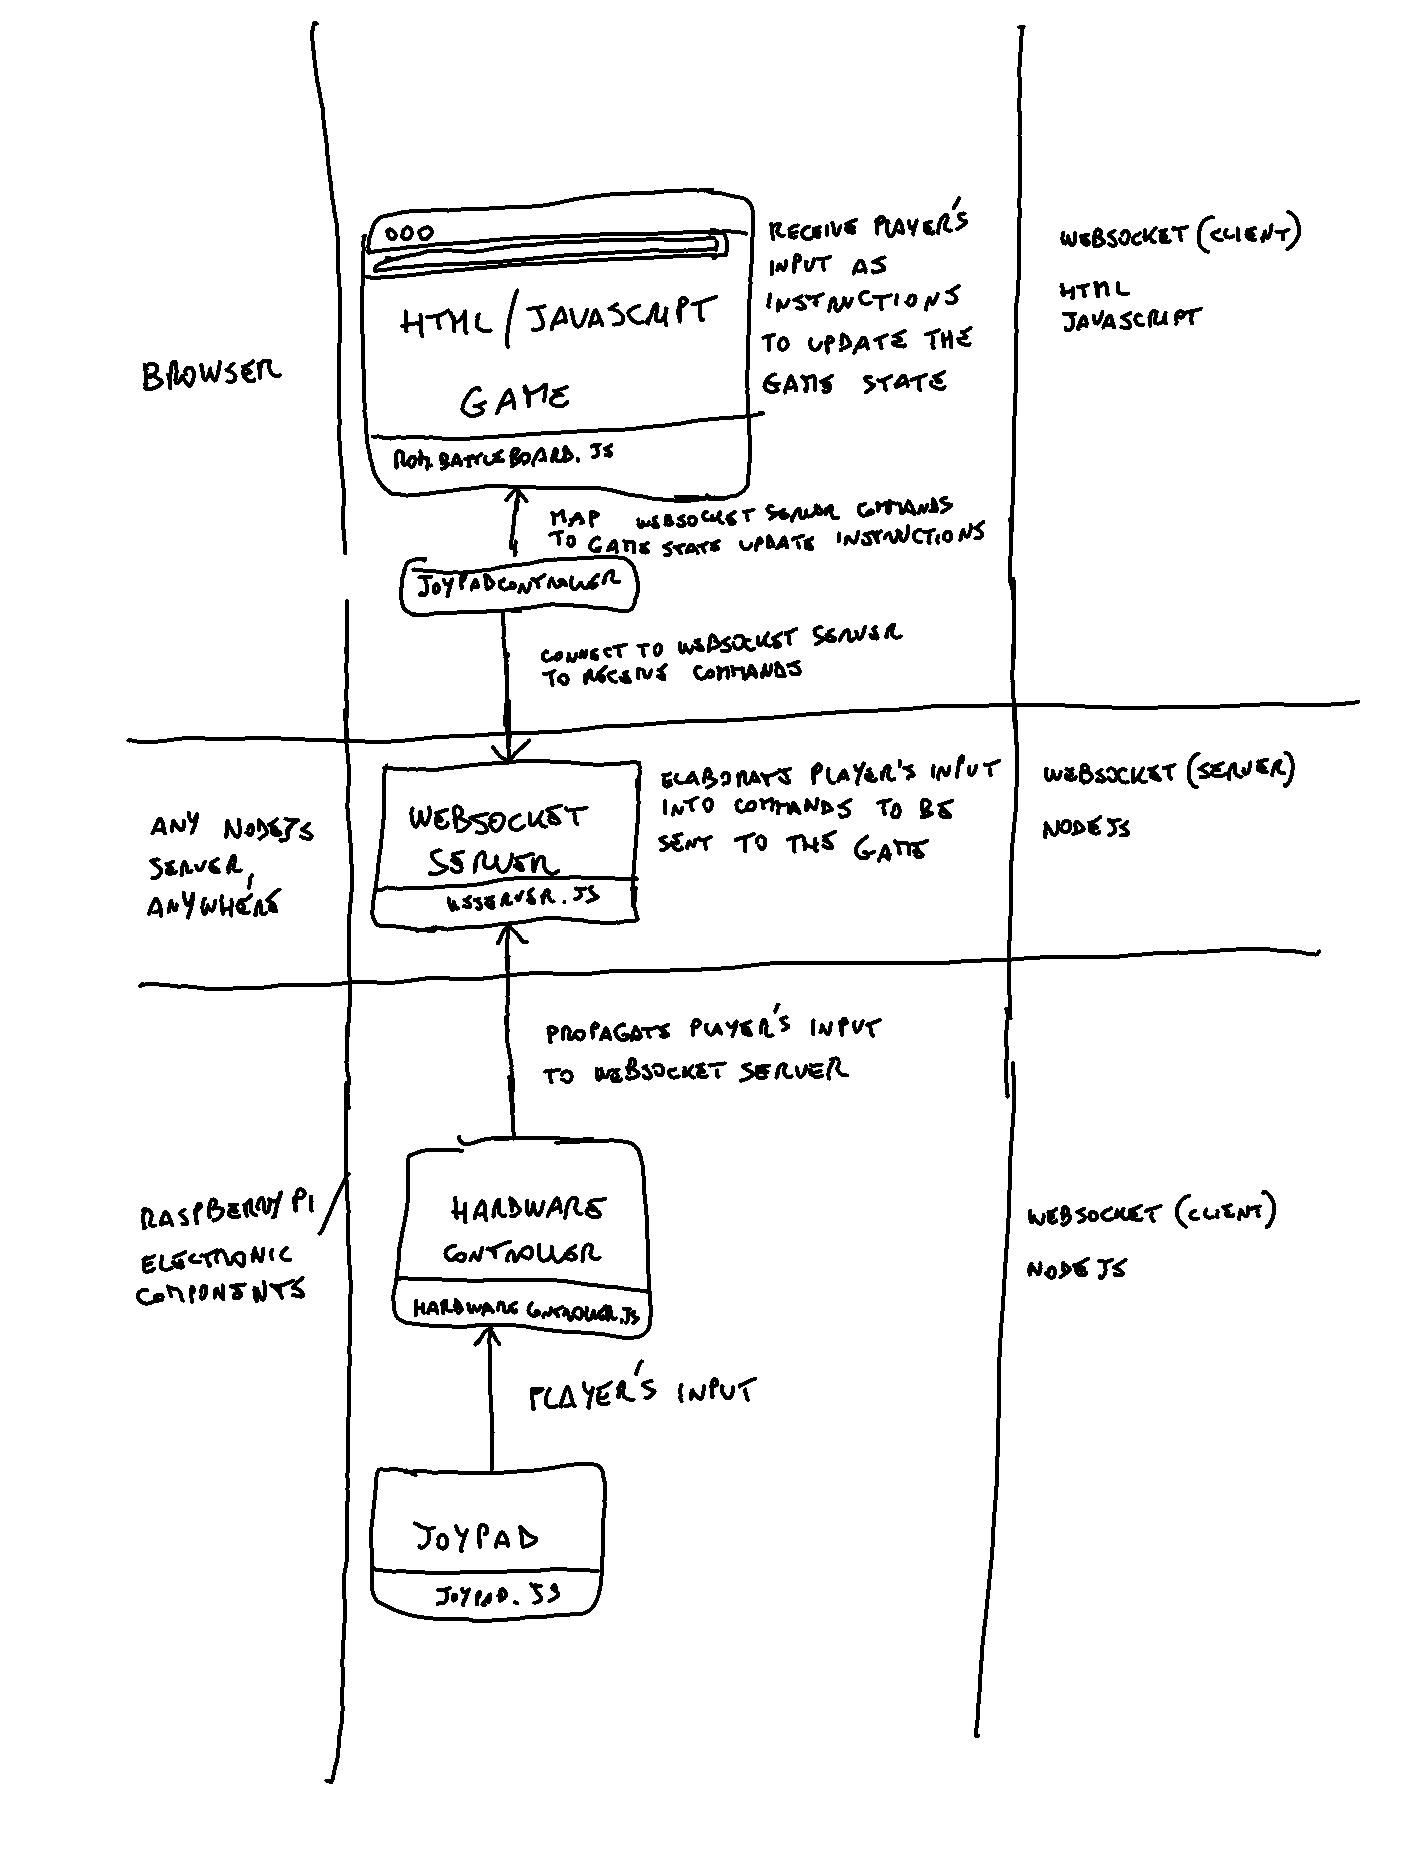 BROWSER
HTML/JAVASCRIPT
GAME
BATTLEBOARD.JS
RECEIVE PLAYER'S
INPUT AS
INSTRUCTIONS
TO UPDATE THE
GAME STATE
WEBSOCKET (CLIENT)
HTML
JAVASCRIPT
MAP WEBSOCKET SERVER COMMANDS
TO GAME STATE UPDATE INSTRUCTIONS
JOYPADCONTROLLER
CONNECT TO WEBSOCKET SERVER
TO RECEIVE COMMANDS
ANY NODEJS
SERVER,
ANYWHERE
WEBSOCKET
SERVER
WSSERVER.JS
ELABORATES PLAYER'S INPUT
INTO COMMANDS TO BE
SENT TO THE GAME
WEBSOCKET (SERVER)
NODEJS
PROPAGATE PLAYER'S INPUT
TO WEBSOCKET SERVER
RASPBERRY PI
ELECTRONIC
COMPONENTS
HARDWARE
CONTROLLER
HARDWARECONTROLLER.JS
WEBSOCKET (CLIENT)
NODEJS
PLAYER'S INPUT
JOYPAD
JOYPAD.JS